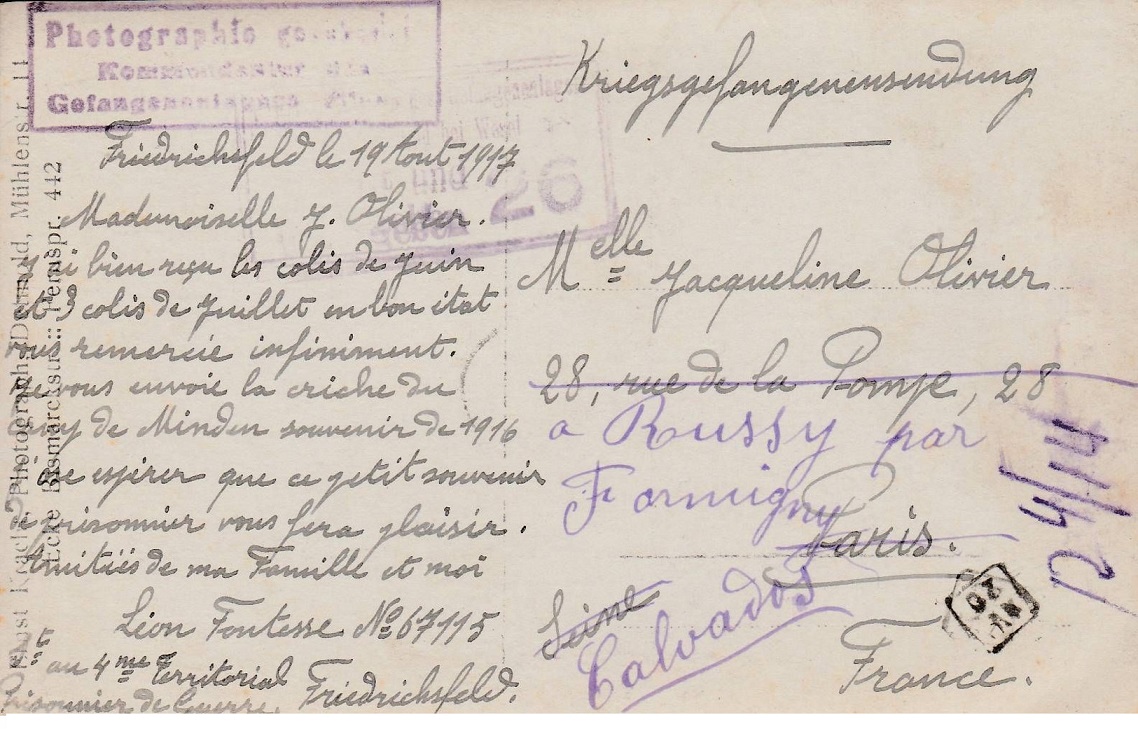 Photographie
Kommandantur des
Gefangenenlagers
bei Wesel
26
Kriegsgefangenensendung
Friedrichsfeld le 19 Aout 1917
Mademoiselle J. Olivier.
J'ai bien reçu les colis de Juin
et 3 colis de Juillet en bon état
vous remercie infiniment.
Je vous envoie la criche du
camp de Minden souvenir de 1916
ose espérer que ce petit souvenir
de prisonnier vous fera plaisir.
Amitiés de ma Famille et moi
Léon Fontesse No 67115
au 4me Territorial
Prisonnier de Guerre. Friedrichsfeld.
Melle Jacqueline Olivier
28, rue de la Pompe, 28
a Russy par
Formigny
Paris.
Seine
Calvados
France.
D 4/14
Photograph, Detmold, Mühlenstr. 11
Ecke Bismarckstr. :: Fernspr. 442